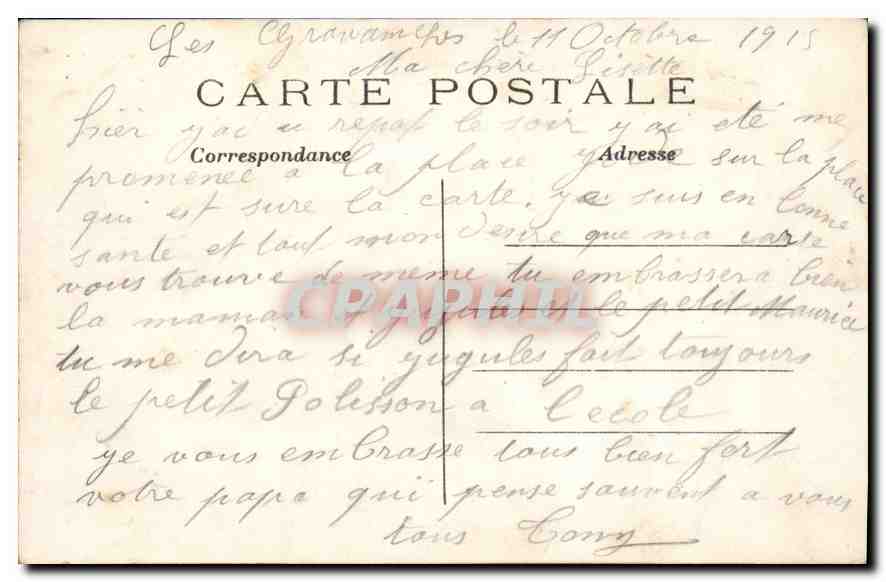 Les Gravanches le 11 Octobre 1915
Ma chère Lisette
CARTE POSTALE
hier y ai u repot le soir y ai eté me
Correspondance
Adresse
promenee a la place sur la place
qui est sure la carte. ye suis en bonne
santé et tout mon desire que ma carte
vous trouve de meme tu embrassera bien
la maman et yugules et le petit Maurice
CPAPHIL
tu me dira si yugules fait toujours
le petit Polisson a l'ecole
ye vous embrasse tous bien fort
votre papa qui pense souvent a vous
tous Tony